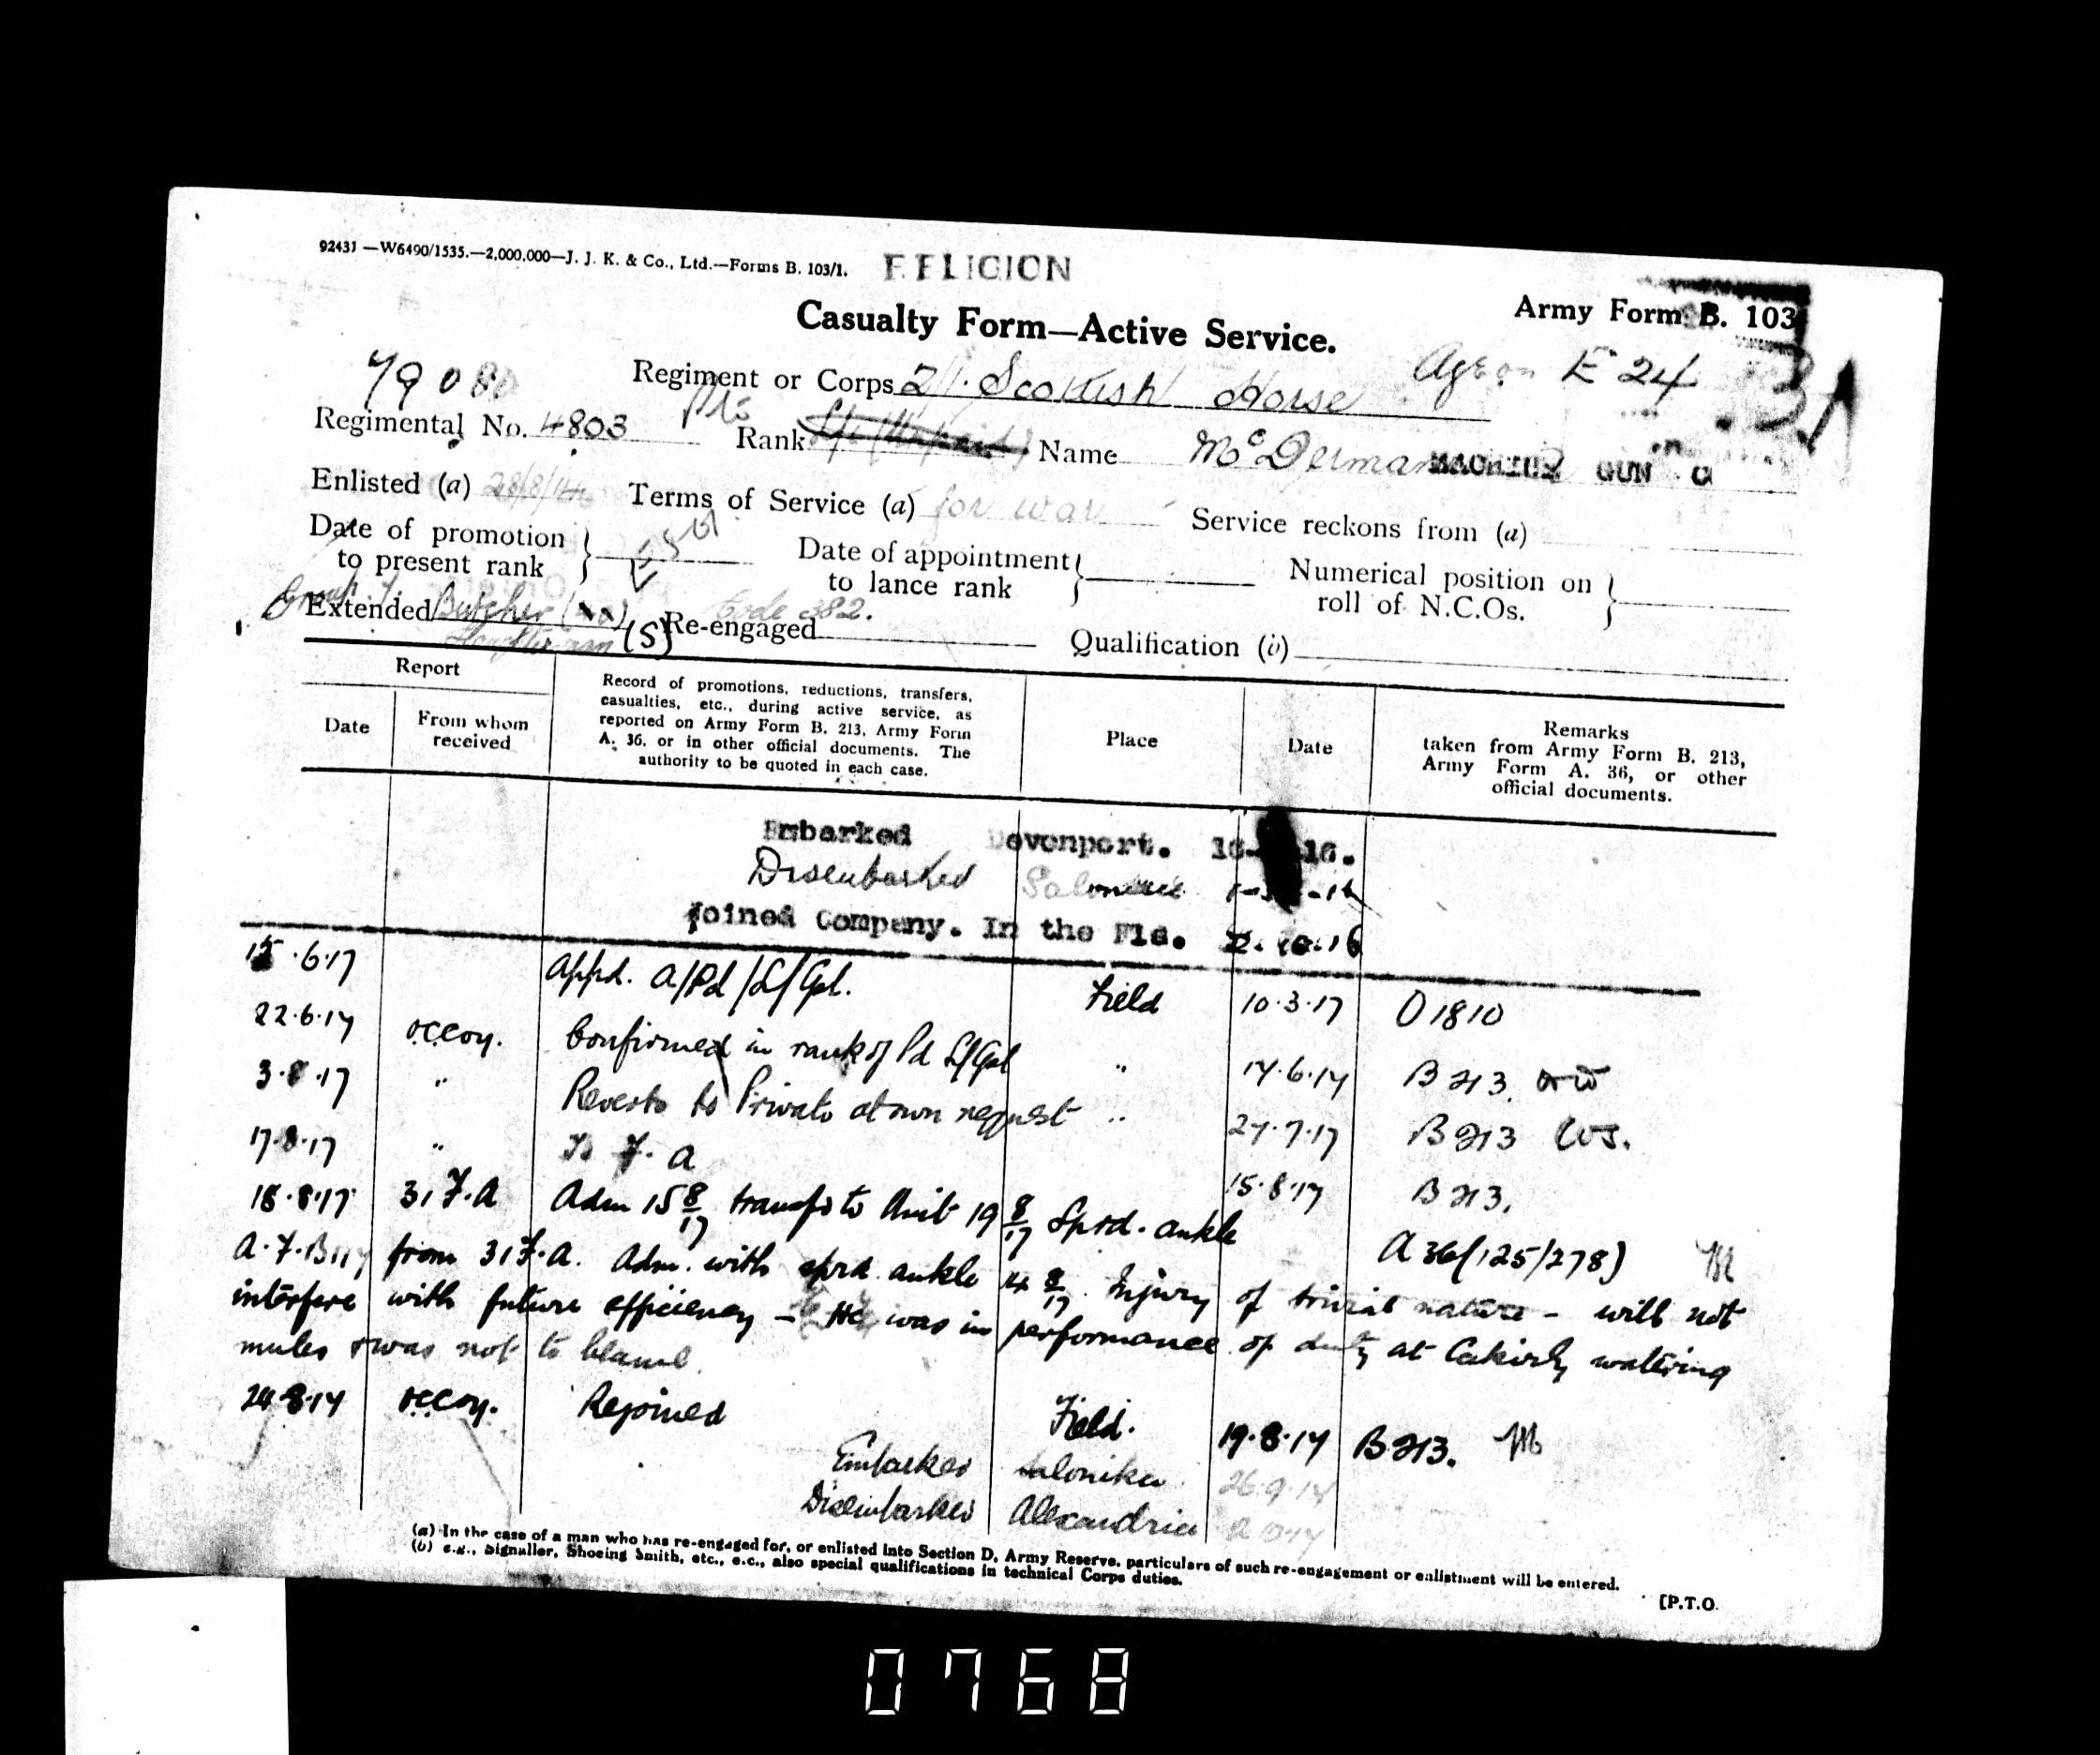 92431 —W6490/1535.—2,000,000—J. J. K. & Co., Ltd.—Forms B. 103/1.
Casualty Form—Active Service.
Army Form B. 103
Regiment or Corps 2/1. Scottish Horse
E 24
Regimental No. 4803
Rank Name McDerma
MACHINE GUN C
Enlisted (a) 28/8/14
Terms of Service (a) for war
Service reckons from (a)
Date of promotion to present rank
Date of appointment to lance rank
Numerical position on roll of N.C.Os.
Extended Butcher
Re-engaged
Code 382.
Qualification (b)
(S)
Report
Date
From whom received
Record of promotions, reductions, transfers, casualties, etc., during active service, as reported on Army Form B. 213, Army Form A. 36, or in other official documents. The authority to be quoted in each case.
Place
Date
Remarks taken from Army Form B. 213, Army Form A. 36, or other official documents.
Embarked Devonport. 16.
Disembarked Salonica
Joined Company. In the Fld. 16
15.6.17 Appd. a/Pd/L/Cpl. Field 10.3.17 O 1810
22.6.17 occoy. Confirmed in rank of Pd L/Cpl " 17.6.17 B 213.
3.8.17 " Reverts to Private at own request " 27.7.17 B 213 WS.
17.8.17 " To F. A 15.8.17 B 213.
18.8.17 31 F.A Adm 15 8/17 transf. to Unit 19 8/17 Sprd. ankle A 36 (125/278)
from 31 F.A. Adm. with sprd. ankle 14 8/17. Injury of trivial nature - will not
interfere with future efficiency - He was in performance of duty at watering
mules & was not to blame.
24.8.17 occoy. Rejoined Field. 19.8.17 B 213.
Embarked Salonika 26.9.17
Disembarked Alexandria
(a) In the case of a man who has re-engaged for, or enlisted into Section D. Army Reserve, particulars of such re-engagement or enlistment will be entered.
(b) e.g., Signaller, Shoeing Smith, etc., e.c., also special qualifications in technical Corps duties.
[P.T.O.
0768